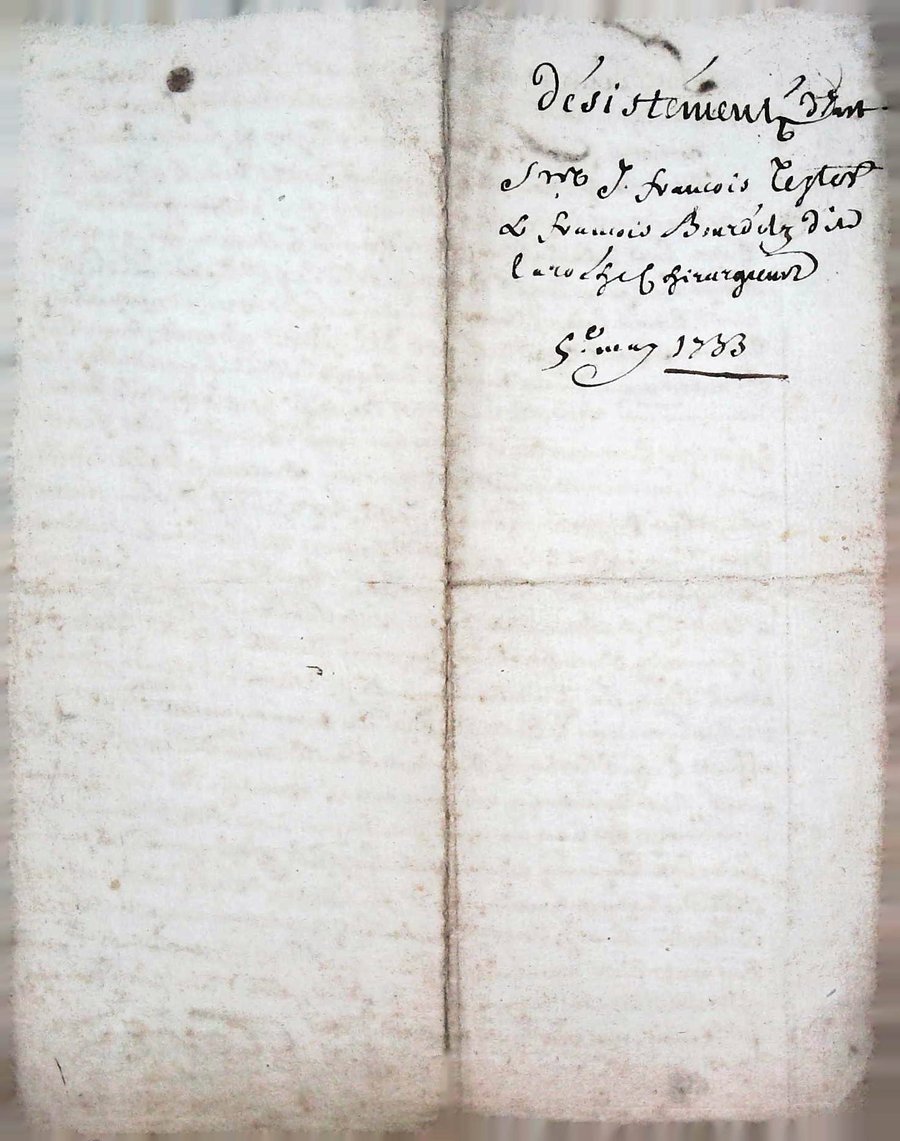 désistément d'entre
Srs J. francois Teyter
& francois Bourdely dit
laroche chirurgiens
5.e may 1733